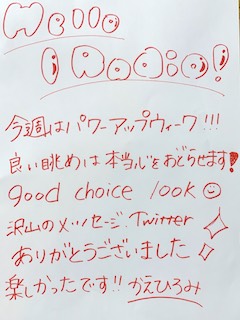 Hello
i Radio!
今週はパワーアップウィーク!!!
良い眺めは本当心をおどらせます!
good choice look☺
沢山のメッセージ、Twitter
ありがとうございました✧
楽しかったです!! かえひろみ